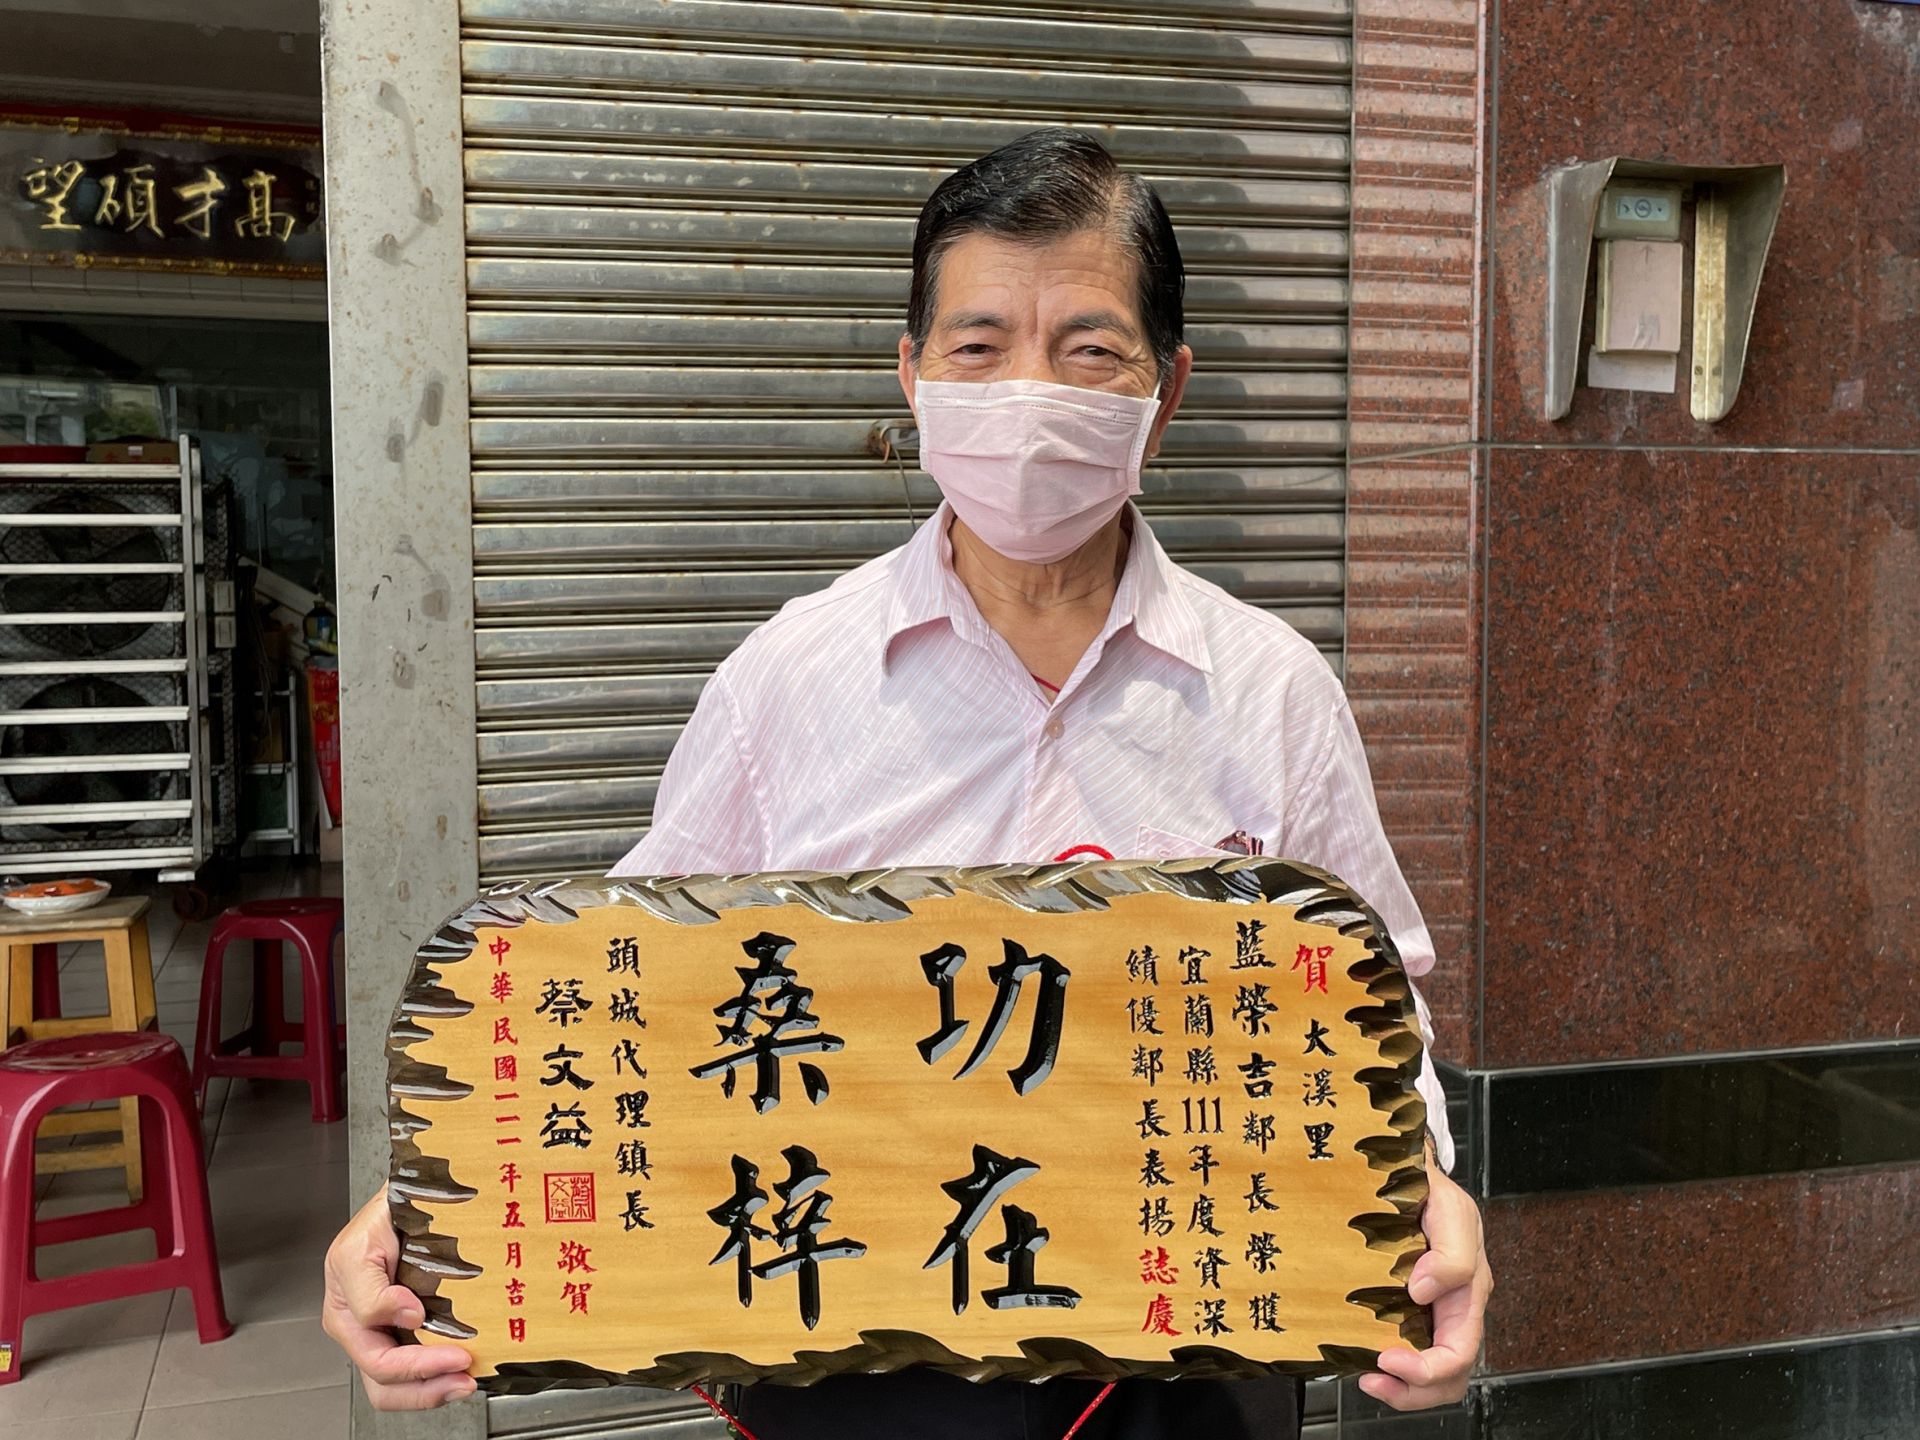 高才碩望
賀大溪里
藍榮吉鄰長榮獲
宜蘭縣111年度資深
績優鄰長表揚誌慶
功在
桑梓
頭城代理鎮長
蔡文益敬賀
蔡文益
中華民國一一一年五月吉日